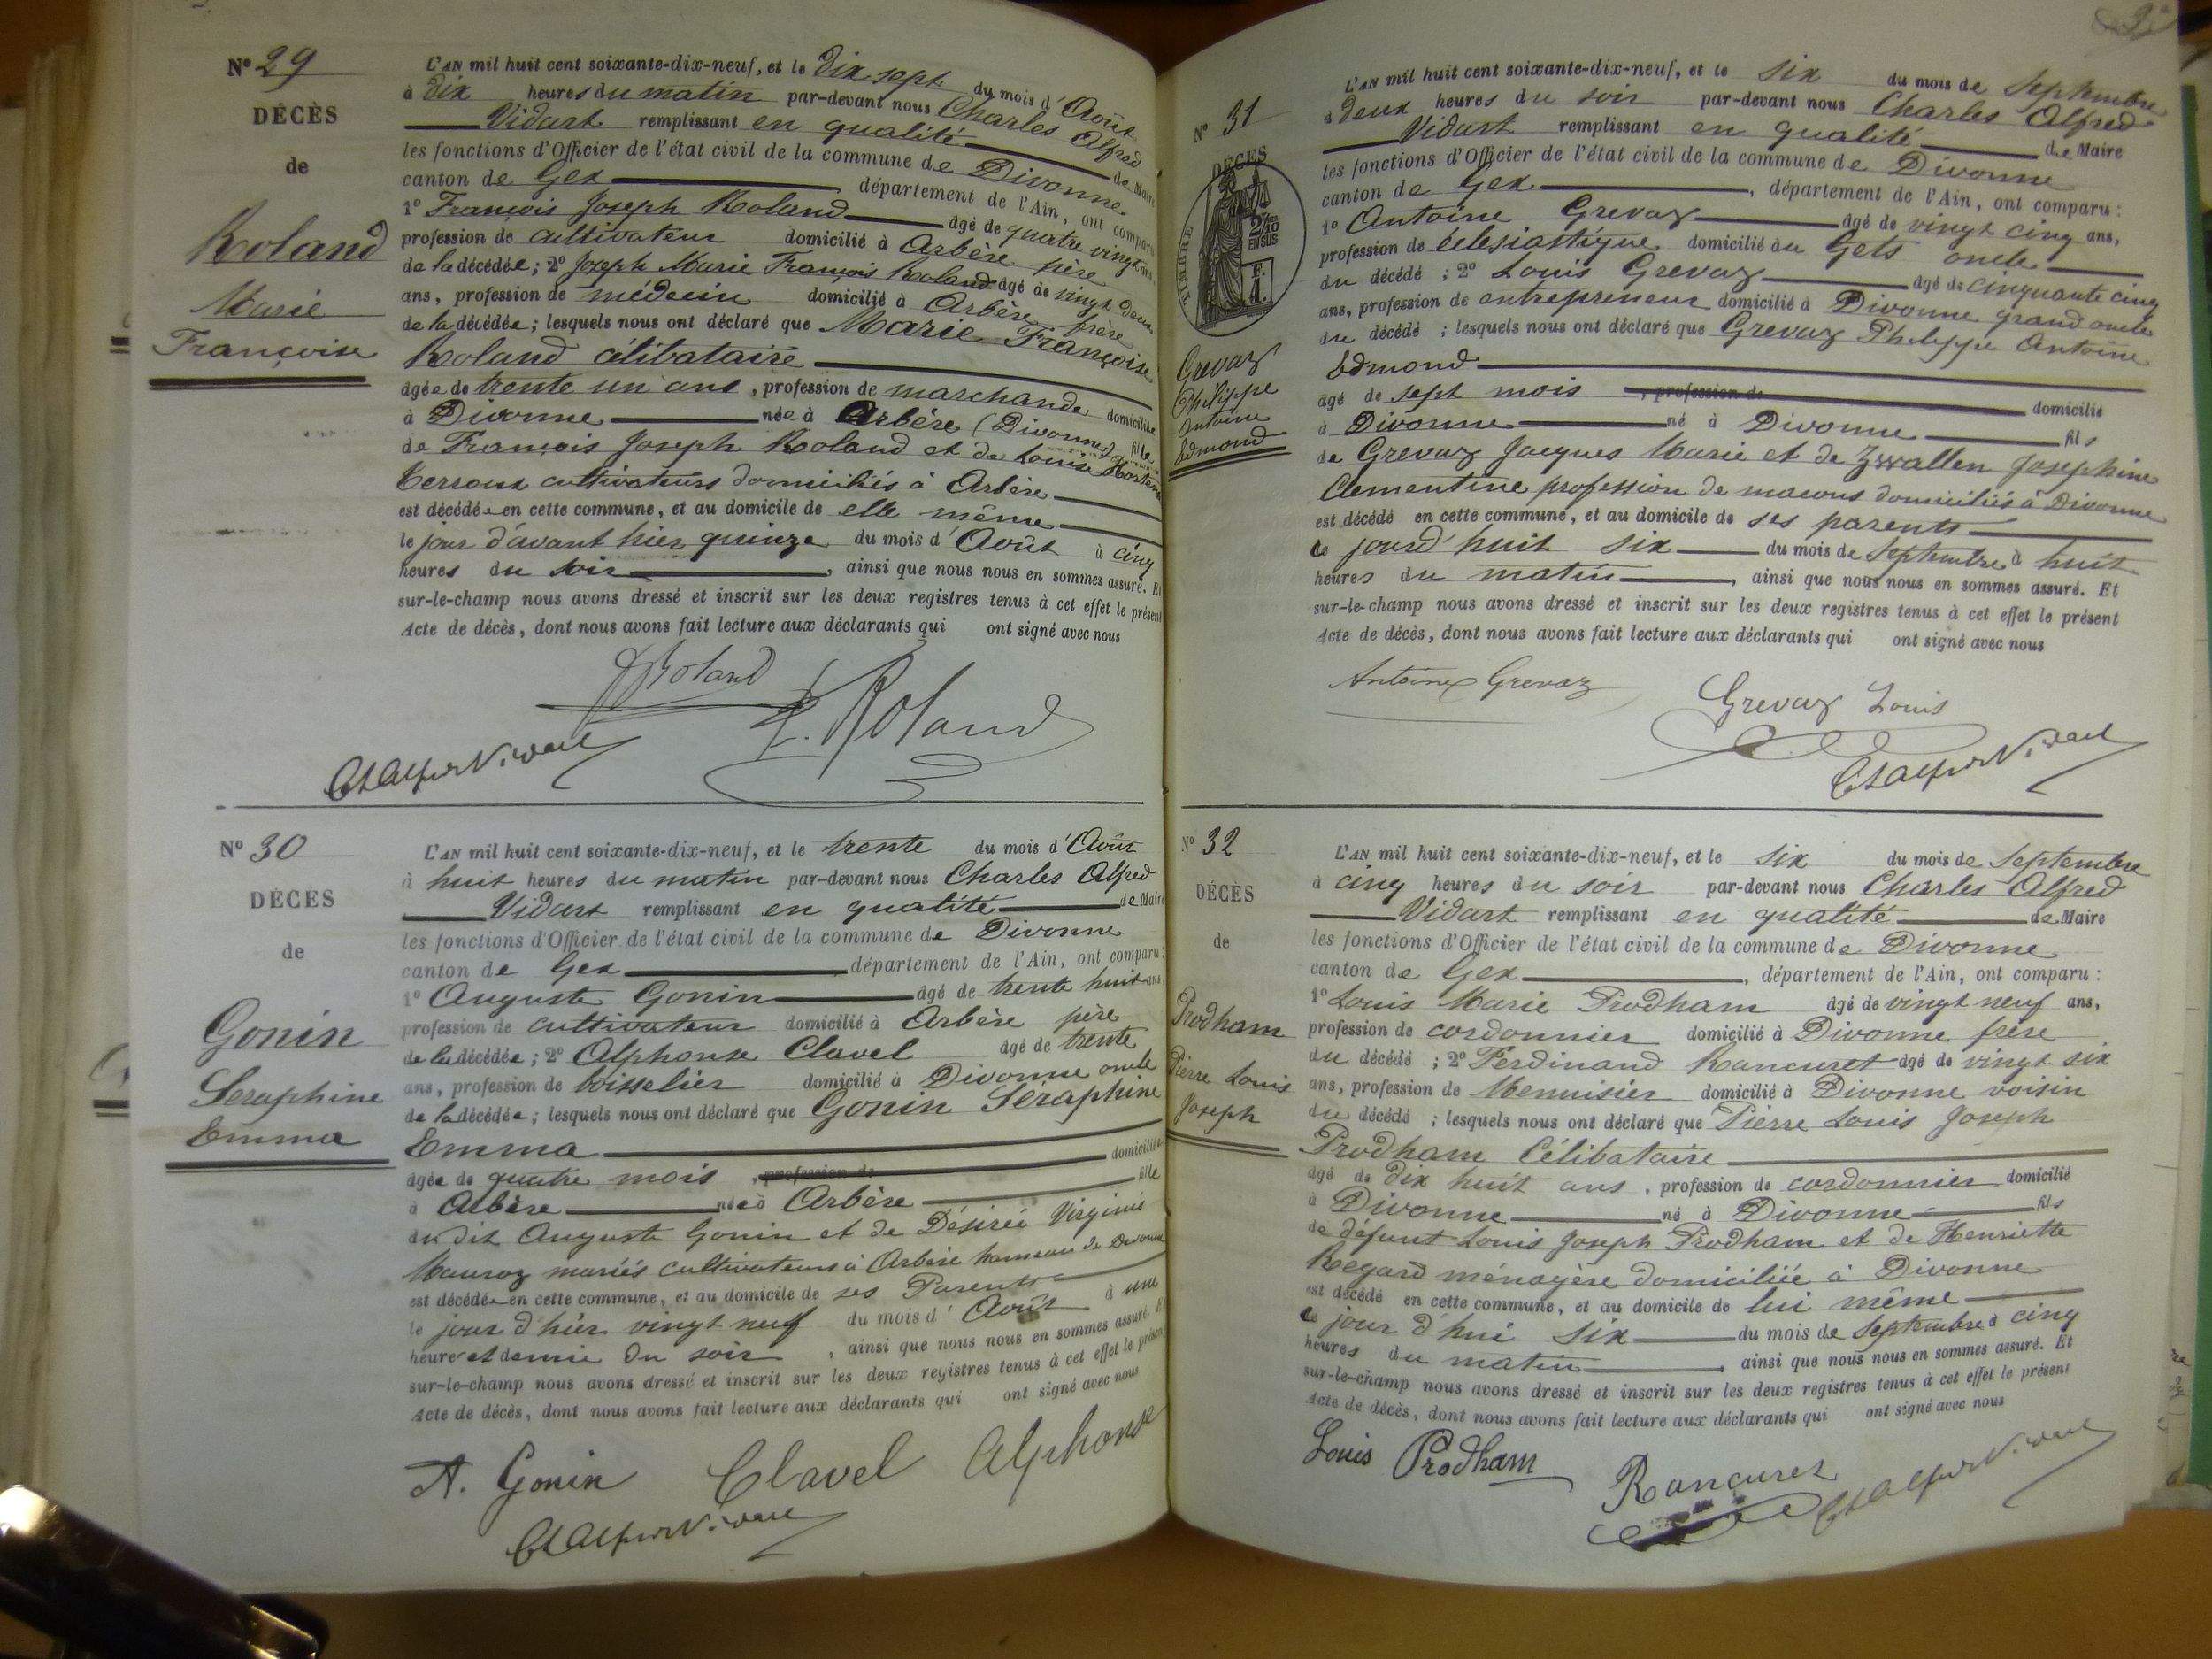 N° 29
DÉCÈS
de
Roland
Marie
Françoise
L'AN mil huit cent soixante-dix-neuf, et le Dix sept du mois d'Août
à Dix heures du matin par-devant nous Charles Alfred
Vidart remplissant en qualité de Maire
les fonctions d'Officier de l'état civil de la commune de Divonne
canton de Gex département de l'Ain, ont comparu
1° François Joseph Roland âgé de quatre vingt ans
profession de cultivateur domicilié à Arbère père
de la décédée; 2° Joseph Marie François Roland âgé de vingt deux
ans, profession de médecin domicilié à Arbère frère
de la décédée; lesquels nous ont déclaré que Marie Françoise
Roland célibataire
âgée de trente un ans, profession de marchande domiciliée
à Divonne née à Arbère (Divonne) fille
de François Joseph Roland et de Louise
Terroux cultivateurs domiciliés à Arbère
est décédée en cette commune, et au domicile de elle même
le jour d'avant hier quinze du mois d'Août à cinq
heures du soir, ainsi que nous nous en sommes assuré. Et
sur-le-champ nous avons dressé et inscrit sur les deux registres tenus à cet effet le présent
Acte de décès, dont nous avons fait lecture aux déclarants qui ont signé avec nous
Roland
Roland
N° 30
DÉCÈS
de
Gonin
Seraphine
Emma
L'AN mil huit cent soixante-dix-neuf, et le trente du mois d'Août
à huit heures du matin par-devant nous Charles Alfred
Vidart remplissant en qualité de Maire
les fonctions d'Officier de l'état civil de la commune de Divonne
canton de Gex département de l'Ain, ont comparu:
1° Auguste Gonin âgé de trente huit ans,
profession de cultivateur domicilié à Arbère père
de la décédée; 2° Alphonse Clavel âgé de trente
ans, profession de boisselier domicilié à Divonne oncle
de la décédée; lesquels nous ont déclaré que Gonin Séraphine
Emma
âgée de quatre mois, profession de domiciliée
à Arbère née à Arbère fille
du dit Auguste Gonin et de Désirée Virginie
Mauroz mariés cultivateurs à Arbère hameau de Divonne
est décédée en cette commune, et au domicile de ses Parents
le jour d'hier vingt neuf du mois d'Août à une
heure et demie du soir, ainsi que nous nous en sommes assuré. Et
sur-le-champ nous avons dressé et inscrit sur les deux registres tenus à cet effet le présent
Acte de décès, dont nous avons fait lecture aux déclarants qui ont signé avec nous
A. Gonin Clavel Alphonse
N° 31
DÉCÈS
TIMBRE
2/10
EN SUS
F.
1.
Grevaz
Philippe
Antoine
Edmond
L'AN mil huit cent soixante-dix-neuf, et le six du mois de Septembre
à Deux heures du soir par-devant nous Charles Alfred
Vidart remplissant en qualité de Maire
les fonctions d'Officier de l'état civil de la commune de Divonne
canton de Gex, département de l'Ain, ont comparu:
1° Antoine Grevaz âgé de vingt cinq ans,
profession de éclesiastique domicilié au Gets oncle
du décédé; 2° Louis Grevaz âgé de cinquante cinq
ans, profession de entrepreneur domicilié à Divonne grand oncle
du décédé; lesquels nous ont déclaré que Grevaz Philippe Antoine
Edmond
âgé de sept mois, profession de domicilié
à Divonne né à Divonne fils
de Grevaz Jacques Marie et de Zwallen Josephine
Clementine profession de macons domiciliés à Divonne
est décédé en cette commune, et au domicile de ses parents
le jourd'huit six du mois de Septembre à huit
heures du matin, ainsi que nous nous en sommes assuré. Et
sur-le-champ nous avons dressé et inscrit sur les deux registres tenus à cet effet le présent
Acte de décès, dont nous avons fait lecture aux déclarants qui ont signé avec nous
Antoine Grevaz
Grevaz Louis
N° 32
DÉCÈS
de
Prodham
Pierre Louis
Joseph
L'AN mil huit cent soixante-dix-neuf, et le six du mois de Septembre
à cinq heures du soir par-devant nous Charles Alfred
Vidart remplissant en qualité de Maire
les fonctions d'Officier de l'état civil de la commune de Divonne
canton de Gex, département de l'Ain, ont comparu:
1° Louis Marie Prodham âgé de vingt neuf ans,
profession de cordonnier domicilié à Divonne frère
du décédé; 2° Ferdinand Rancuret âgé de vingt six
ans, profession de Menuisier domicilié à Divonne voisin
du décédé; lesquels nous ont déclaré que Pierre Louis Joseph
Prodham Célibataire
âgé de Dix huit ans, profession de cordonnier domicilié
à Divonne né à Divonne fils
de défunt Louis Joseph Prodham et de Henriette
Regard ménagère domiciliée à Divonne
est décédé en cette commune, et au domicile de lui même
le jour d'hui six du mois de Septembre à cinq
heures du matin, ainsi que nous nous en sommes assuré. Et
sur-le-champ nous avons dressé et inscrit sur les deux registres tenus à cet effet le présent
Acte de décès, dont nous avons fait lecture aux déclarants qui ont signé avec nous
Louis Prodham
Rancurez